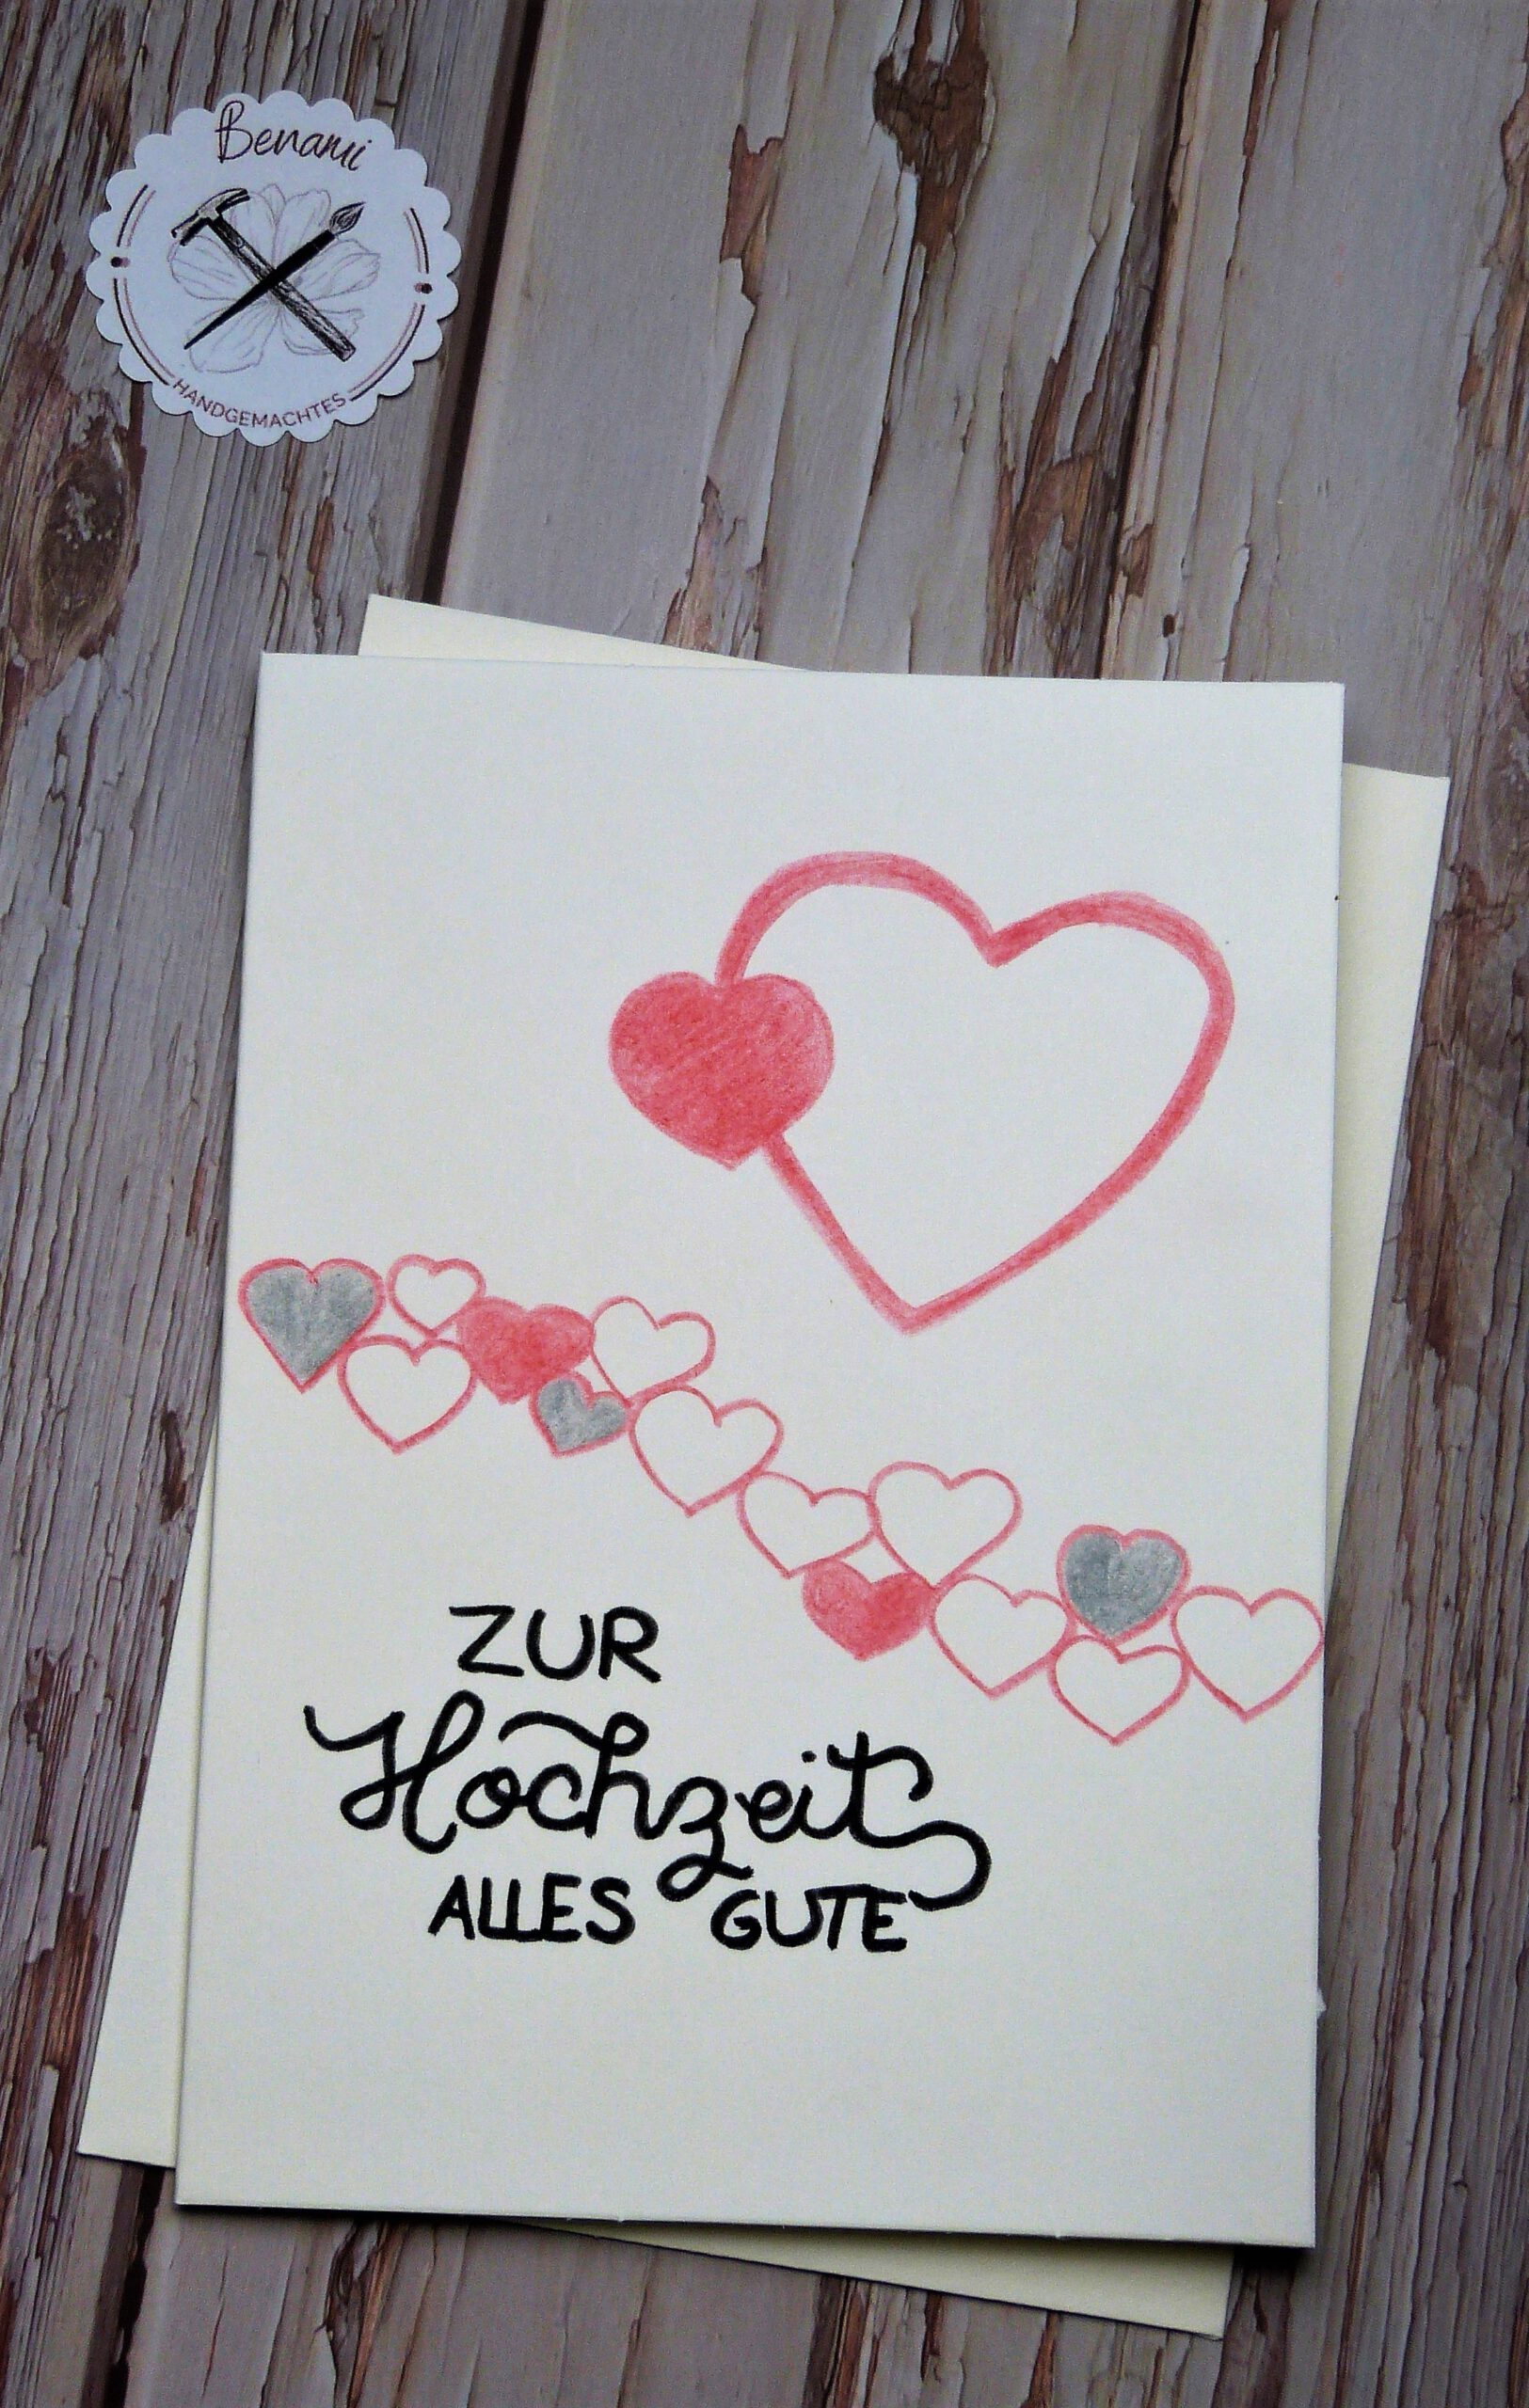 Benami
HANDGEMACHTES
ZUR
Hochzeit
ALLES GUTE